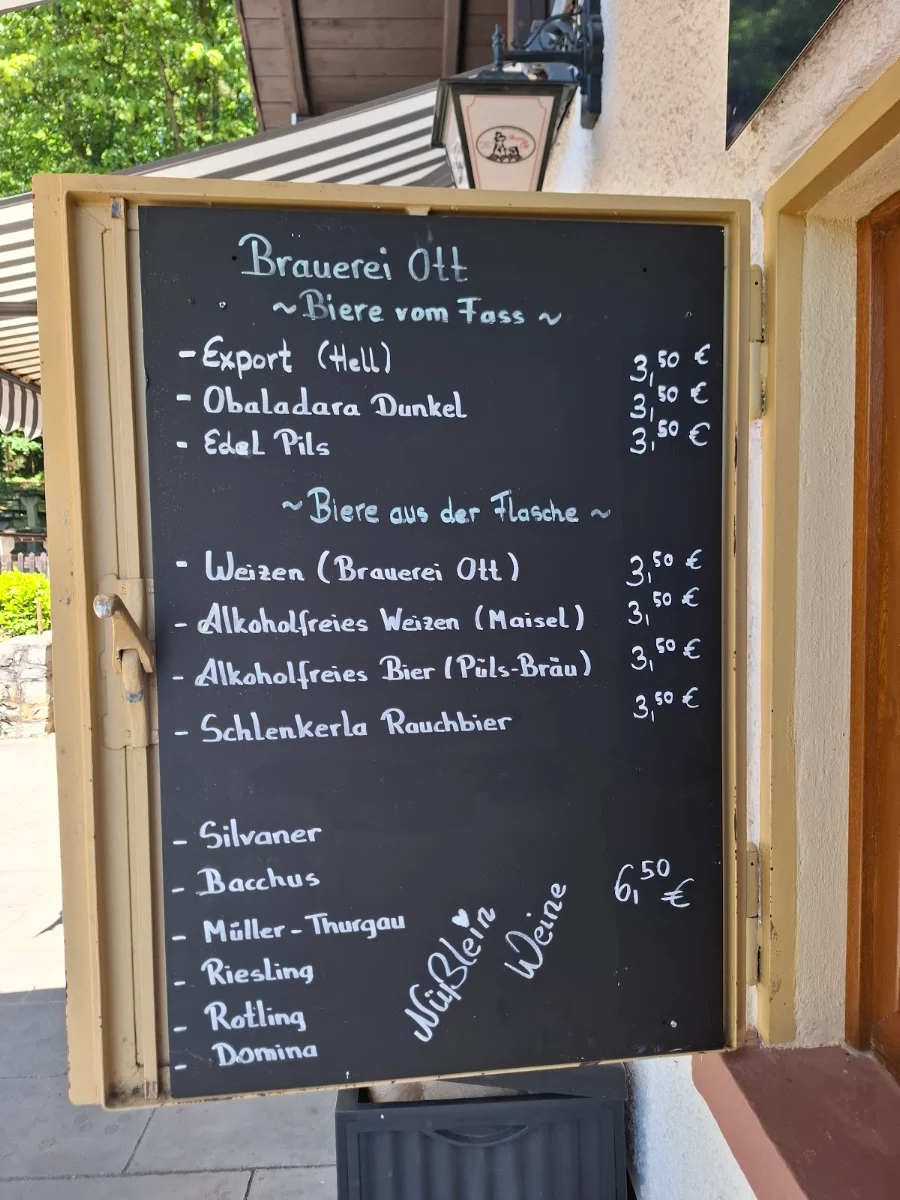 Brauerei Ott
~ Biere vom Fass ~
- Export (Hell) 3,50 €
- Obaladara Dunkel 3,50 €
- Edel Pils 3,50 €
~ Biere aus der Flasche ~
- Weizen (Brauerei Ott) 3,50 €
- Alkoholfreies Weizen (Maisel) 3,50 €
- Alkoholfreies Bier (Püls-Bräu) 3,50 €
- Schlenkerla Rauchbier 3,50 €
- Silvaner
- Bacchus
- Müller-Thurgau
- Riesling
- Rotling
- Domina
Nüßlein
Weine
6,50 €